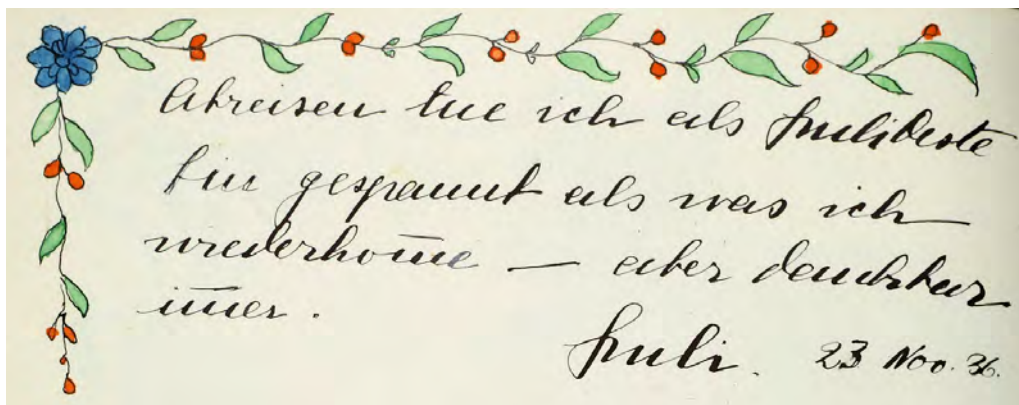 Abreisen tue ich als Julibeste
bin gespannt als was ich
wiederkom̄e — aber dankbar
im̄er.
Juli. 23 Nov. 36.